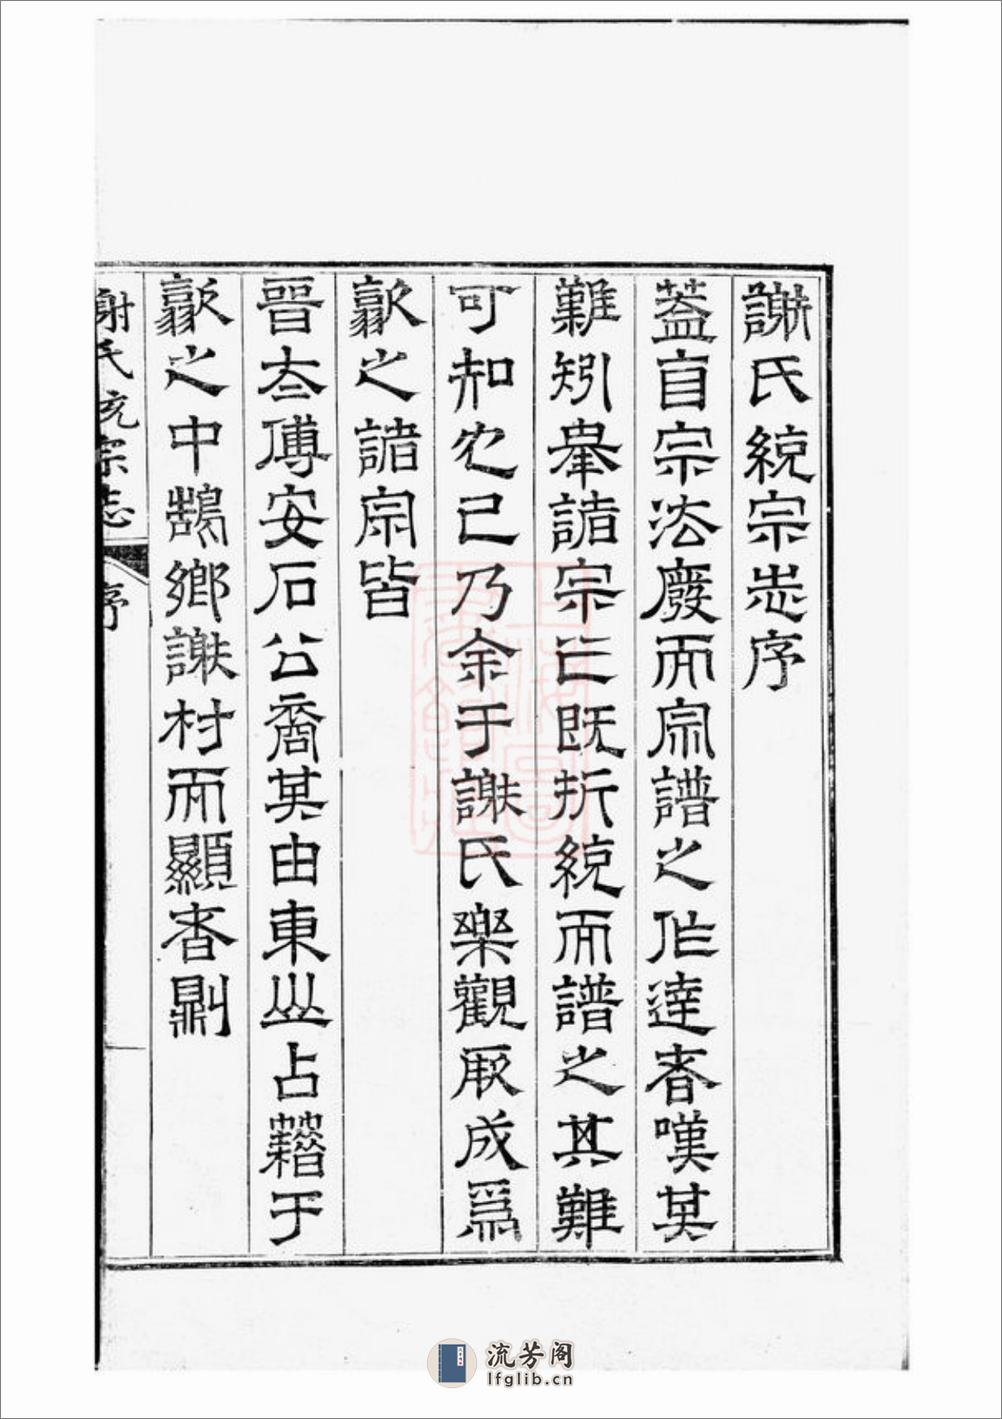 謝氏統宗志序
蓋自宗法廢而宗譜之作達者嘆其
難矧舉諸宗亡既折統而譜之其難
可知也己乃余于謝氏樂觀厥成焉
歙之諸宗皆
晉太傅安石公裔其由東山占藉于
歙之中鵠鄉謝村而顯者則
謝氏統宗志
序
流芳阁
lfglib.cn